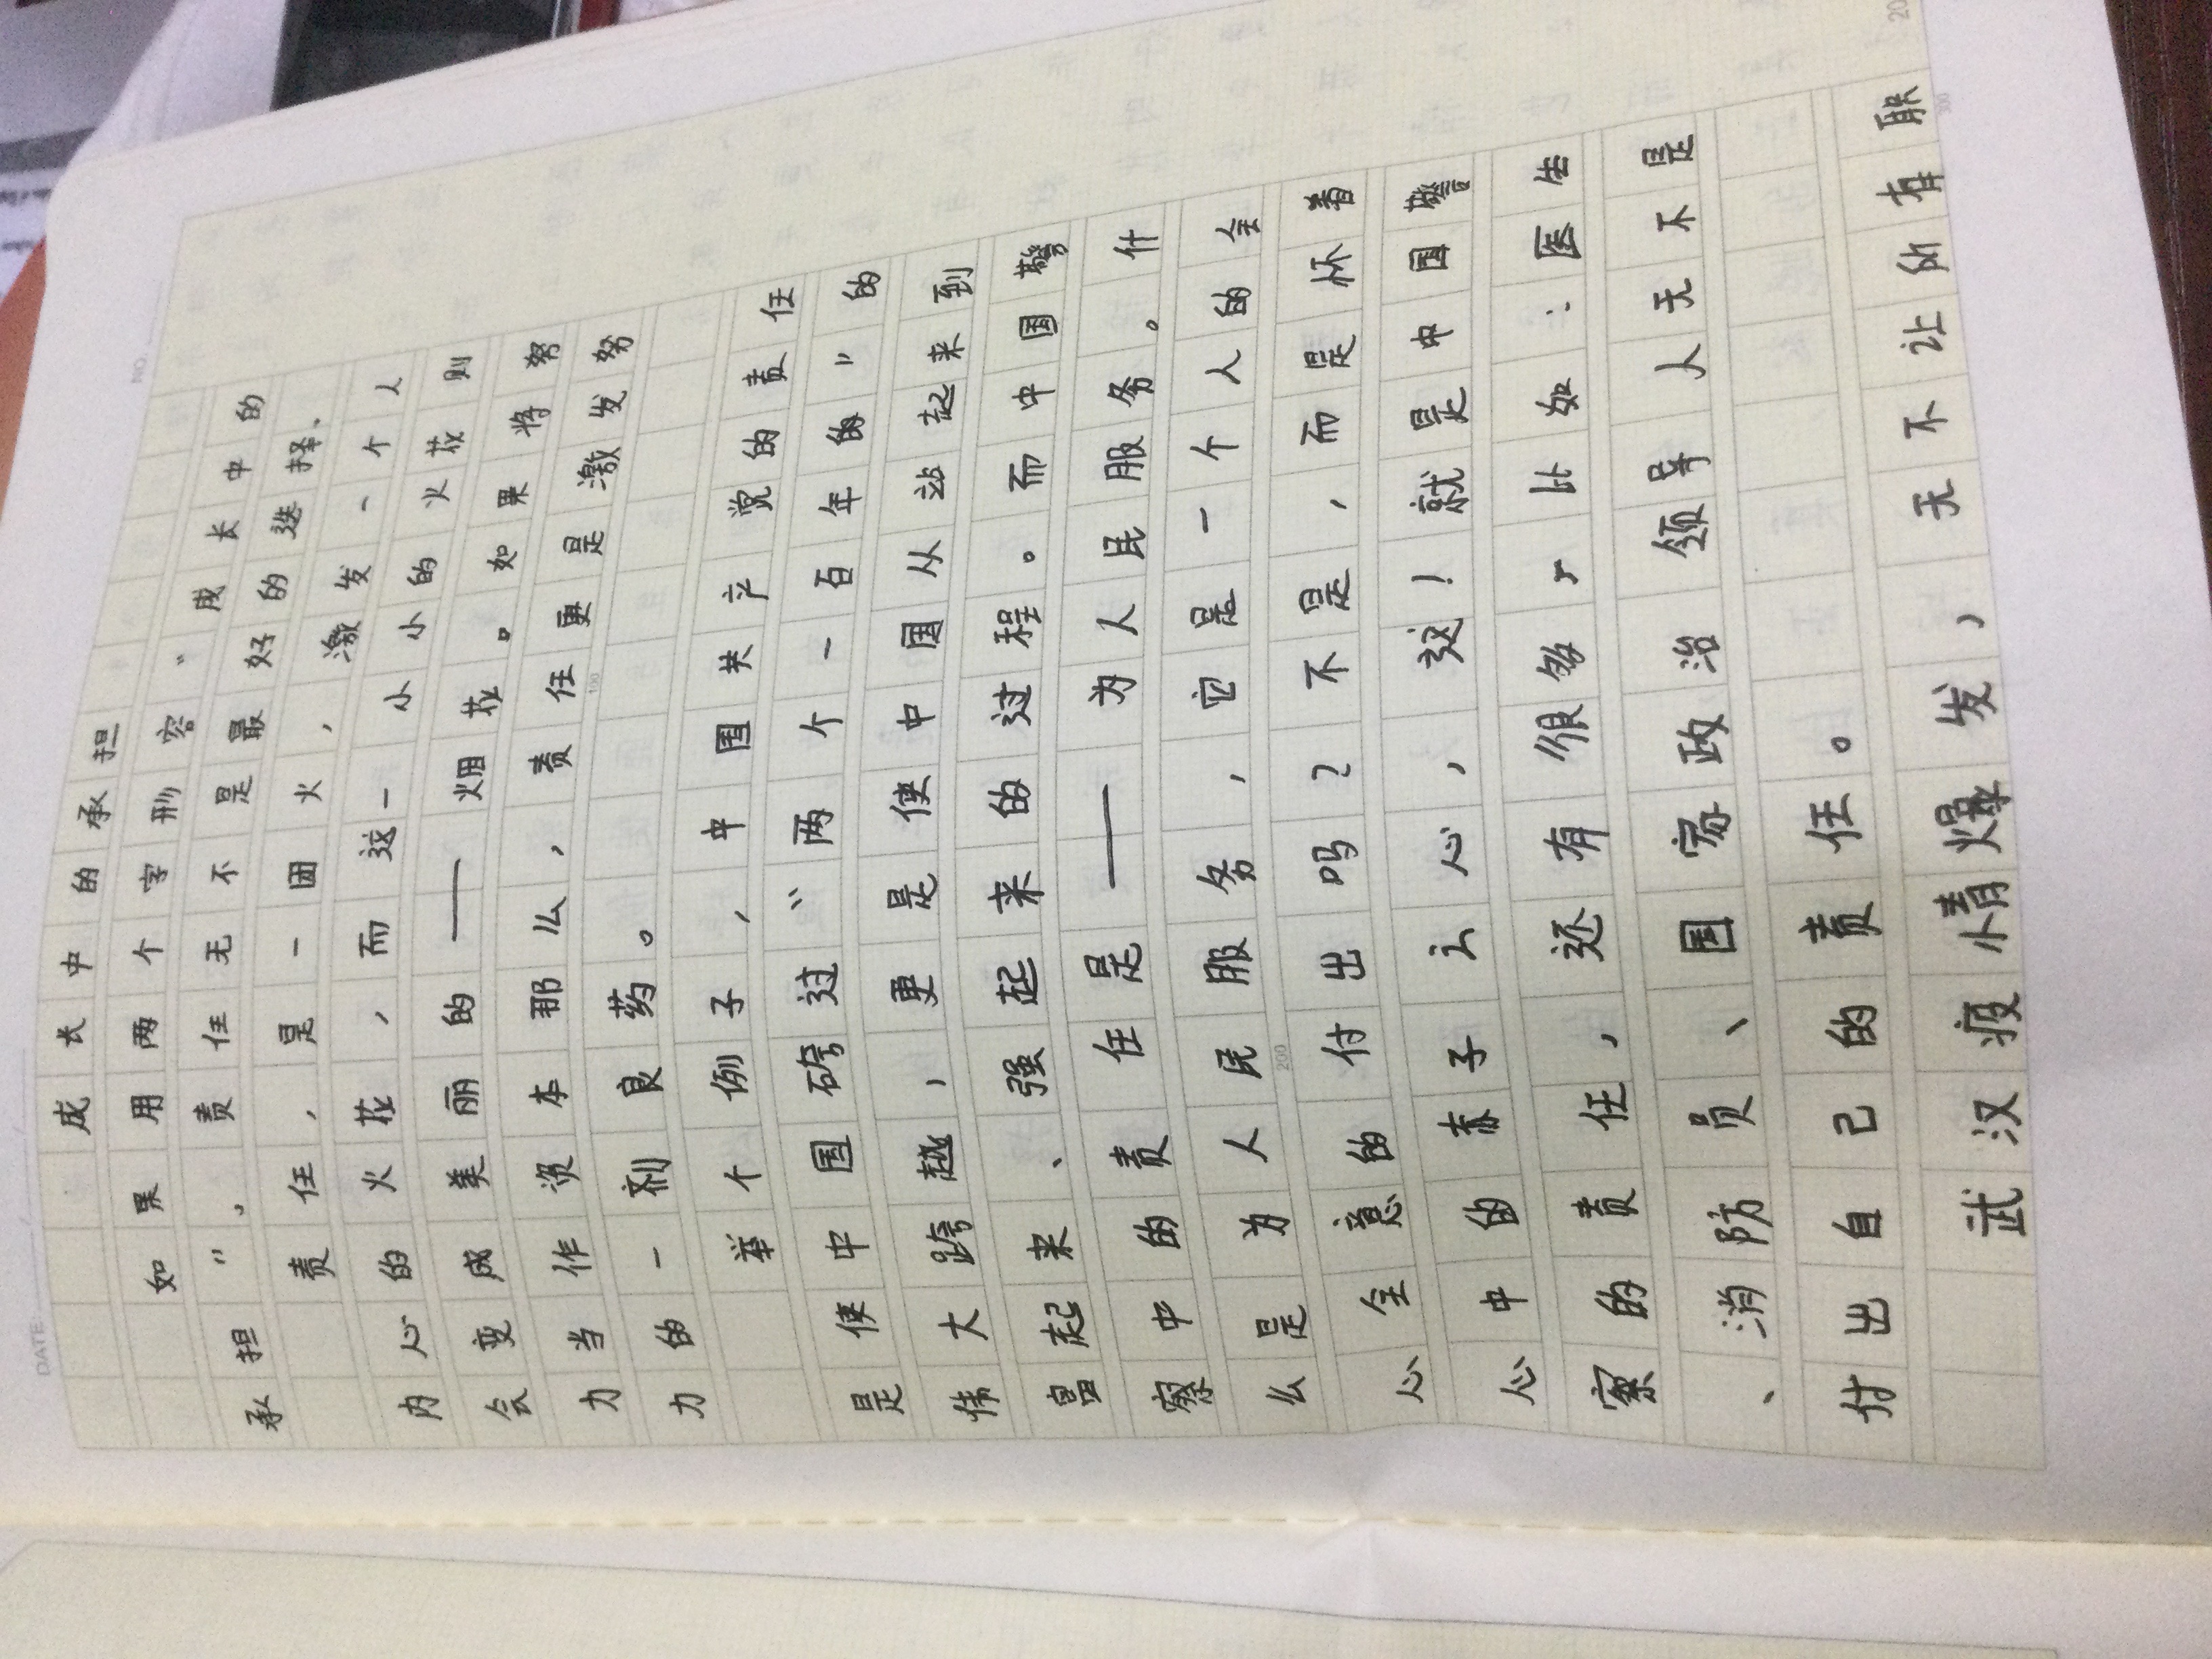 DATE.
NO.
成长中的承担
如果用两个字形容“成长中的
承担”,责任无不是最好的选择.
责任,是一团火,激发一个人
内心的火花,而这一小小的火花则
会变成美丽的——烟花。如果将努
力当作资本那么,责任更是激发努
100
力的一剂良药。
举个例子,中国共产党的责任
是使中国过“两个一百年的”的
伟大跨越,更是使中国从站起来到
富起来、强起来的过程。而中国警
察中的责任是——为人民服务。什
么是为人民服务,它是一个人的全
200
心全意的付出吗?不是,而是怀着
心中的赤子之心,这!就是中国警
察的责任,还有很多,比如:医生
、消防员、国家政治领导人无不是
付出自己的责任。
武汉疫情爆发,无不让所有职
300
20